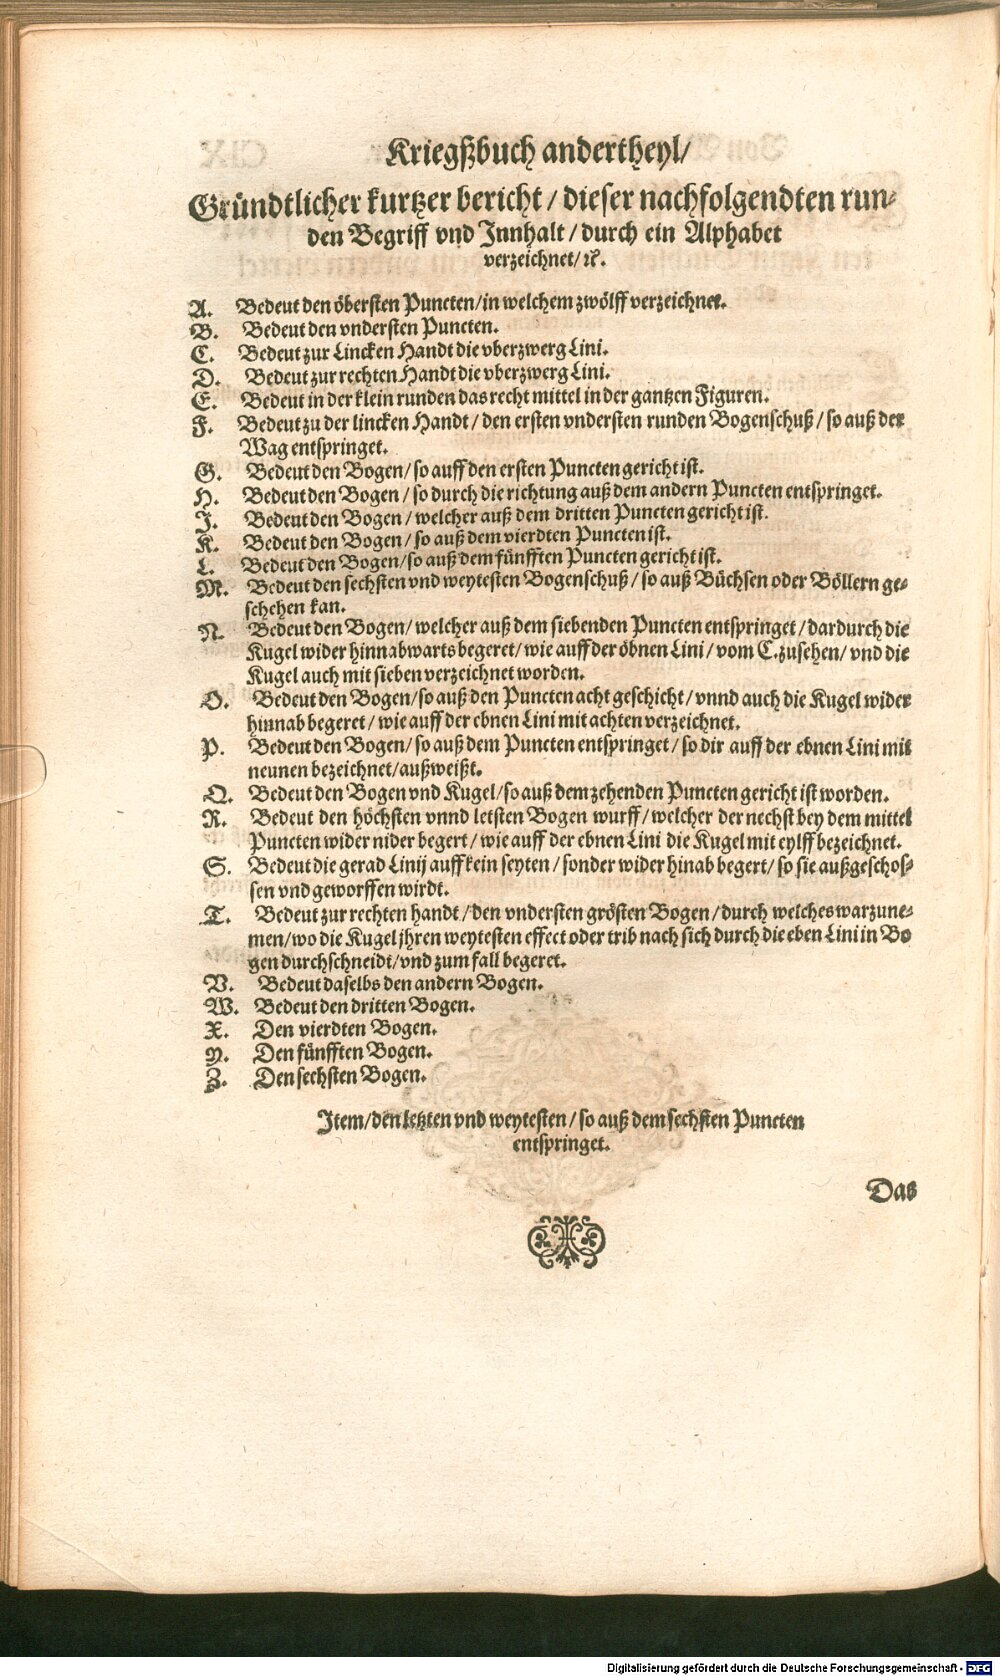 Kriegßbuch andertheyl/
Gründtlicher kurtzer bericht / dieser nachfolgendten run-
den Begriff vnd Innhalt / durch ein Alphabet
verzeichnet/ ꝛc.
A. Bedeut den öbersten Puncten/in welchem zwölff verzeichnet.
B. Bedeut den vndersten Puncten.
C. Bedeut zur Lincken Handt die vberzwerg Lini.
D. Bedeut zur rechten Handt die vberzwerg Lini.
E. Bedeut in der klein runden das recht mittel in der gantzen Figuren.
F. Bedeut zu der lincken Handt / den ersten vndersten runden Bogenschuß / so auß der
Wag entspringet.
G. Bedeut den Bogen/ so auff den ersten Puncten gericht ist.
H. Bedeut den Bogen / so durch die richtung auß dem andern Puncten entspringet.
J. Bedeut den Bogen / welcher auß dem dritten Puncten gericht ist.
K. Bedeut den Bogen / so auß dem vierdten Puncten ist.
L. Bedeut den Bogen/so auß dem fünfften Puncten gericht ist.
M. Bedeut den sechsten vnd weytesten Bogenschuß / so auß Büchsen oder Böllern ge-
schehen kan.
N. Bedeut den Bogen/ welcher auß dem siebenden Puncten entspringet / dardurch die
Kugel wider hinnabwarts begeret/ wie auff der öbnen Lini / vom C. zusehen/ vnd die
Kugel auch mit sieben verzeichnet worden.
O. Bedeut den Bogen/so auß den Puncten acht geschicht / vnnd auch die Kugel wider
hinnab begeret / wie auff der ebnen Lini mit achten verzeichnet.
P. Bedeut den Bogen/ so auß dem Puncten entspringet / so dir auff der ebnen Lini mit
neunen bezeichnet/außweißt.
Q. Bedeut den Bogen vnd Kugel/so auß dem zehenden Puncten gericht ist worden.
R. Bedeut den höchsten vnnd letsten Bogen wurff / welcher der nechst bey dem mittel
Puncten wider nider begert / wie auff der ebnen Lini die Kugel mit eylff bezeichnet.
S. Bedeut die gerad Linij auff kein seyten / sonder wider hinab begert / so sie außgeschos-
sen vnd geworffen wirdt.
T. Bedeut zur rechten handt / den vndersten grösten Bogen / durch welches warzune-
men/wo die Kugel jhren weytesten effect oder trib nach sich durch die eben Lini in Bo
gen durchschneidt/vnd zum fall begeret.
V. Bedeut daselbs den andern Bogen.
W. Bedeut den dritten Bogen.
X. Den vierdten Bogen.
Y. Den fünfften Bogen.
Z. Den sechsten Bogen.
Item/den letzten vnd weytesten / so auß dem sechsten Puncten
entspringet.
Das
Digitalisierung gefördert durch die Deutsche Forschungsgemeinschaft - DFG